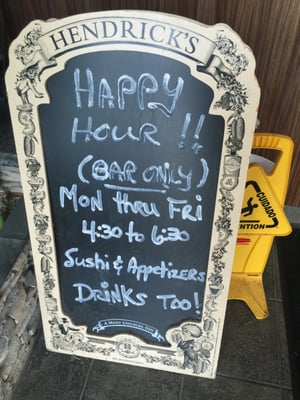 HENDRICK'S
HAPPY
HOUR !!
(BAR ONLY)
MON thru FRI
4:30 to 6:30
Sushi & Appetizers
DRINKS TOO!
A MOST UNUSUAL GIN
H
CUIDADO